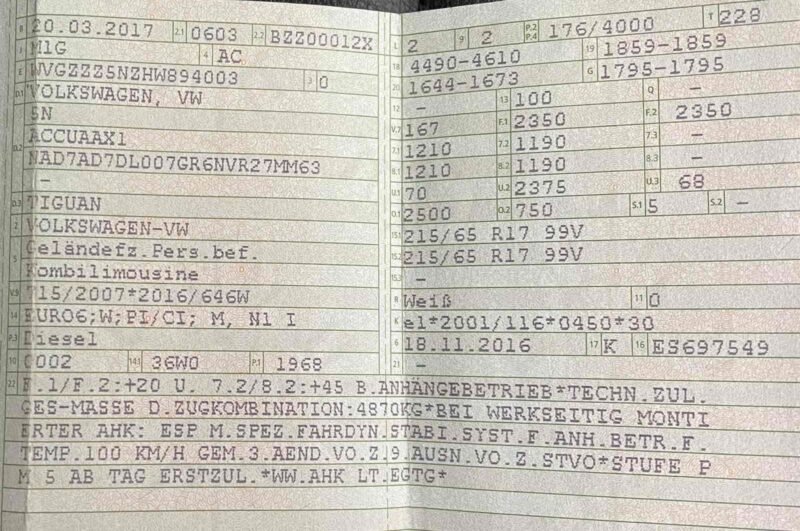 B 20.03.2017 2.1 0603 2.2 BZZ00012X
J M1G 4 AC
E WVGZZZ5NZHW894003 3 0
D.1 VOLKSWAGEN, VW
5N
D.2 ACCUAAX1
NAD7AD7DL007GR6NVR27MM63
–
D.3 TIGUAN
2 VOLKSWAGEN-VW
5 Geländefz.Pers.bef.
Kombilimousine
V.9 715/2007*2016/646W
14 EURO6;W;PI/CI; M, N1 I
P.3 Diesel
10 0002 14.1 36W0 P.1 1968
L 2 9 2 P.2 P.4 176/4000 T 228
18 4490-4610 19 1859-1859
20 1644-1673 G 1795-1795
12 – 13 100 Q –
V.7 167 F.1 2350 F.2 2350
7.1 1210 7.2 1190 7.3 –
8.1 1210 8.2 1190 8.3 –
U.1 70 U.2 2375 U.3 68
O.1 2500 O.2 750 S.1 5 S.2 –
15.1 215/65 R17 99V
15.2 215/65 R17 99V
15.3 –
R Weiß 11 0
K e1*2001/116*0450*30
6 18.11.2016 17 K 16 ES697549
21 –
22 F.1/F.2:+20 U. 7.2/8.2:+45 B.ANHÄNGEBETRIEB*TECHN.ZUL.
GES-MASSE D.ZUGKOMBINATION:4870KG*BEI WERKSEITIG MONTI
ERTER AHK: ESP M.SPEZ.FAHRDYN.STABI.SYST.F.ANH.BETR.F.
TEMP.100 KM/H GEM.3.AEND.VO.Z.9.AUSN.VO.Z.STVO*STUFE P
M 5 AB TAG ERSTZUL.*WW.AHK LT.EGTG*